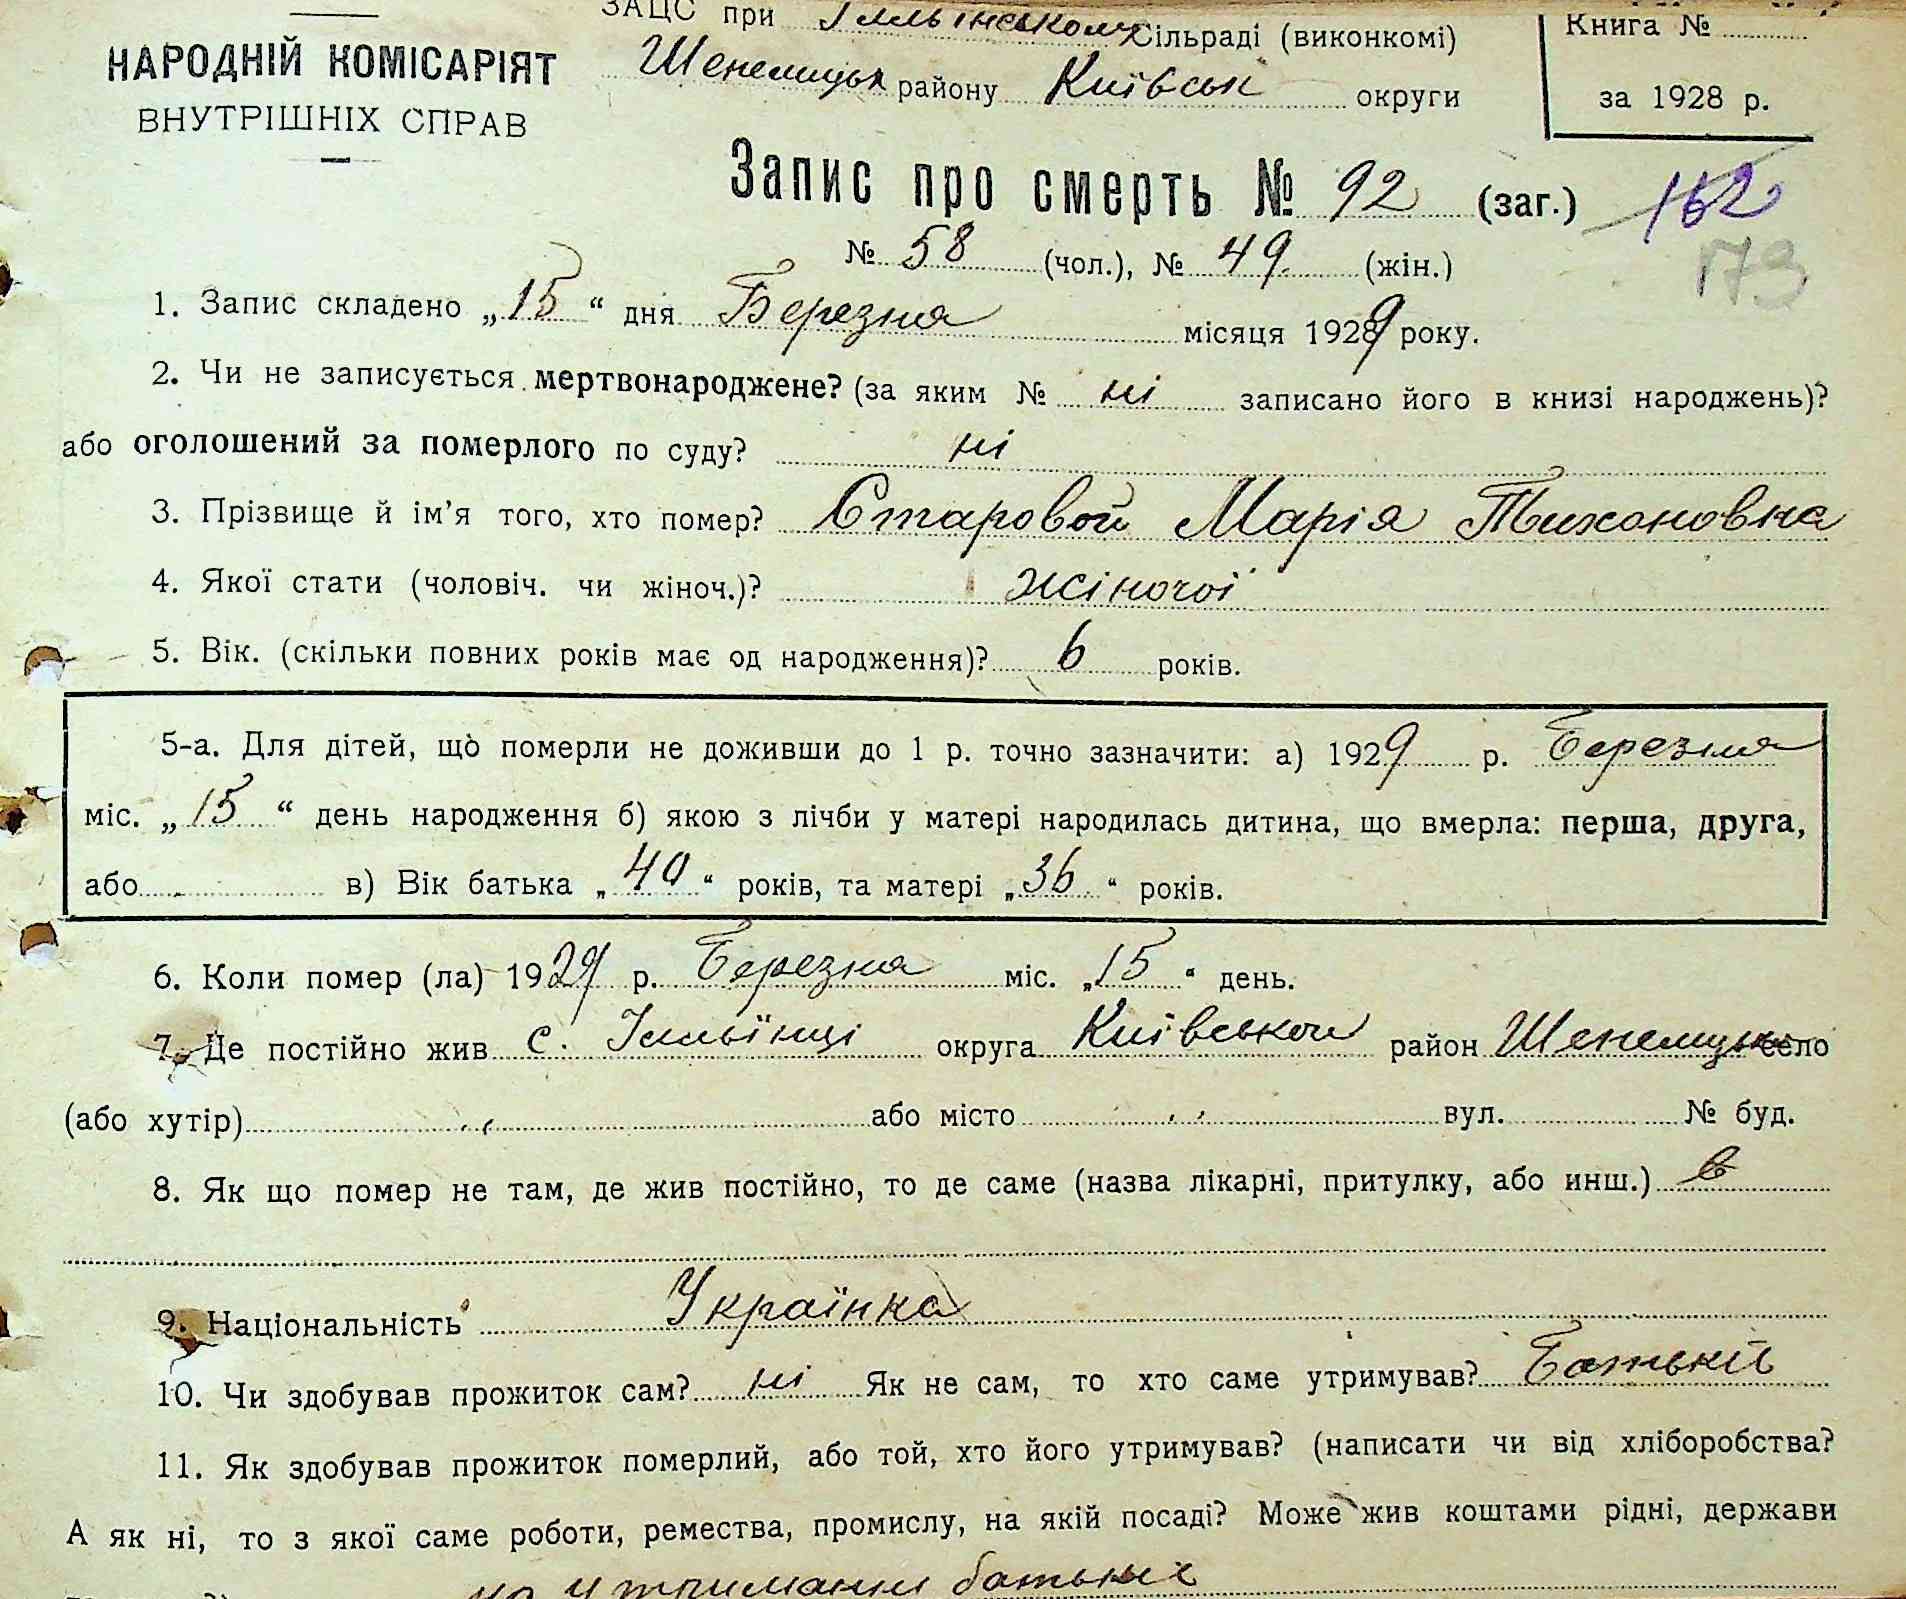 ЗАЦС при Ілльінському Сільраді (виконкомі)
Книга №
НАРОДНІЙ КОМІСАРІЯТ
Шепелицьк району Київськ округи
за 1928 р.
ВНУТРІШНІХ СПРАВ
Запис про смерть № 92 (заг.) 162
№ 58 (чол.), № 49. (жін.) 173
1. Запис складено „15“ дня Березня місяця 1929 року.
2. Чи не записується мертвонароджене? (за яким № ні записано його в книзі народжень)?
або оголошений за померлого по суду? ні
3. Прізвище й ім’я того, хто помер? Старовой Марія Тихоновна
4. Якої стати (чоловіч. чи жіноч.)? жіночої
5. Вік. (скільки повних років має од народження)? 6 років.
5-а. Для дітей, що померли не доживши до 1 р. точно зазначити: а) 1929 р. Березня
міс. „15“ день народження б) якою з лічби у матері народилась дитина, що вмерла: перша, друга,
або в) Вік батька „40“ років, та матері „36“ років.
6. Коли помер (ла) 1929 р. Березня міс. „15“ день.
7. Де постійно жив с. Ілльїнці округа Київської район Шепелицьк село
(або хутір) або місто вул. № буд.
8. Як що помер не там, де жив постійно, то де саме (назва лікарні, притулку, або инш.) в
9. Національність Українка
10. Чи здобував прожиток сам? ні Як не сам, то хто саме утримував? Батьків
11. Як здобував прожиток померлий, або той, хто його утримував? (написати чи від хліборобства?
А як ні, то з якої саме роботи, ремества, промислу, на якій посаді? Може жив коштами рідні, держави
на утриманні батьків